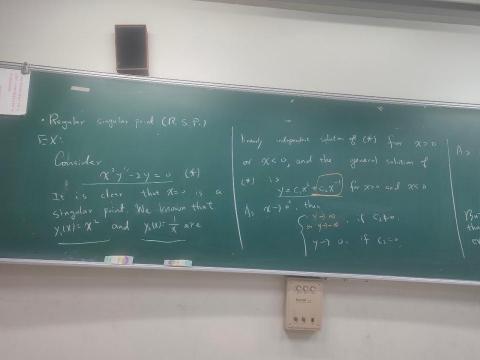 • Regular singular point (R.S.P.)
EX:
Consider
x²y″-2y=0 (*)
It is clear that x=0 is a
singular point. We known that
y₁(x)=x² and y₂(x)=1/x are
linearly independent solution of (*) for x>0
or x<0, and the general solution of
(*) is
y=c₁x²+c₂x⁻¹ for x>0 and x<0
As x→0, then
y→∞
or y→-∞ , if c₂≠0.
y→0, if c₂=0.